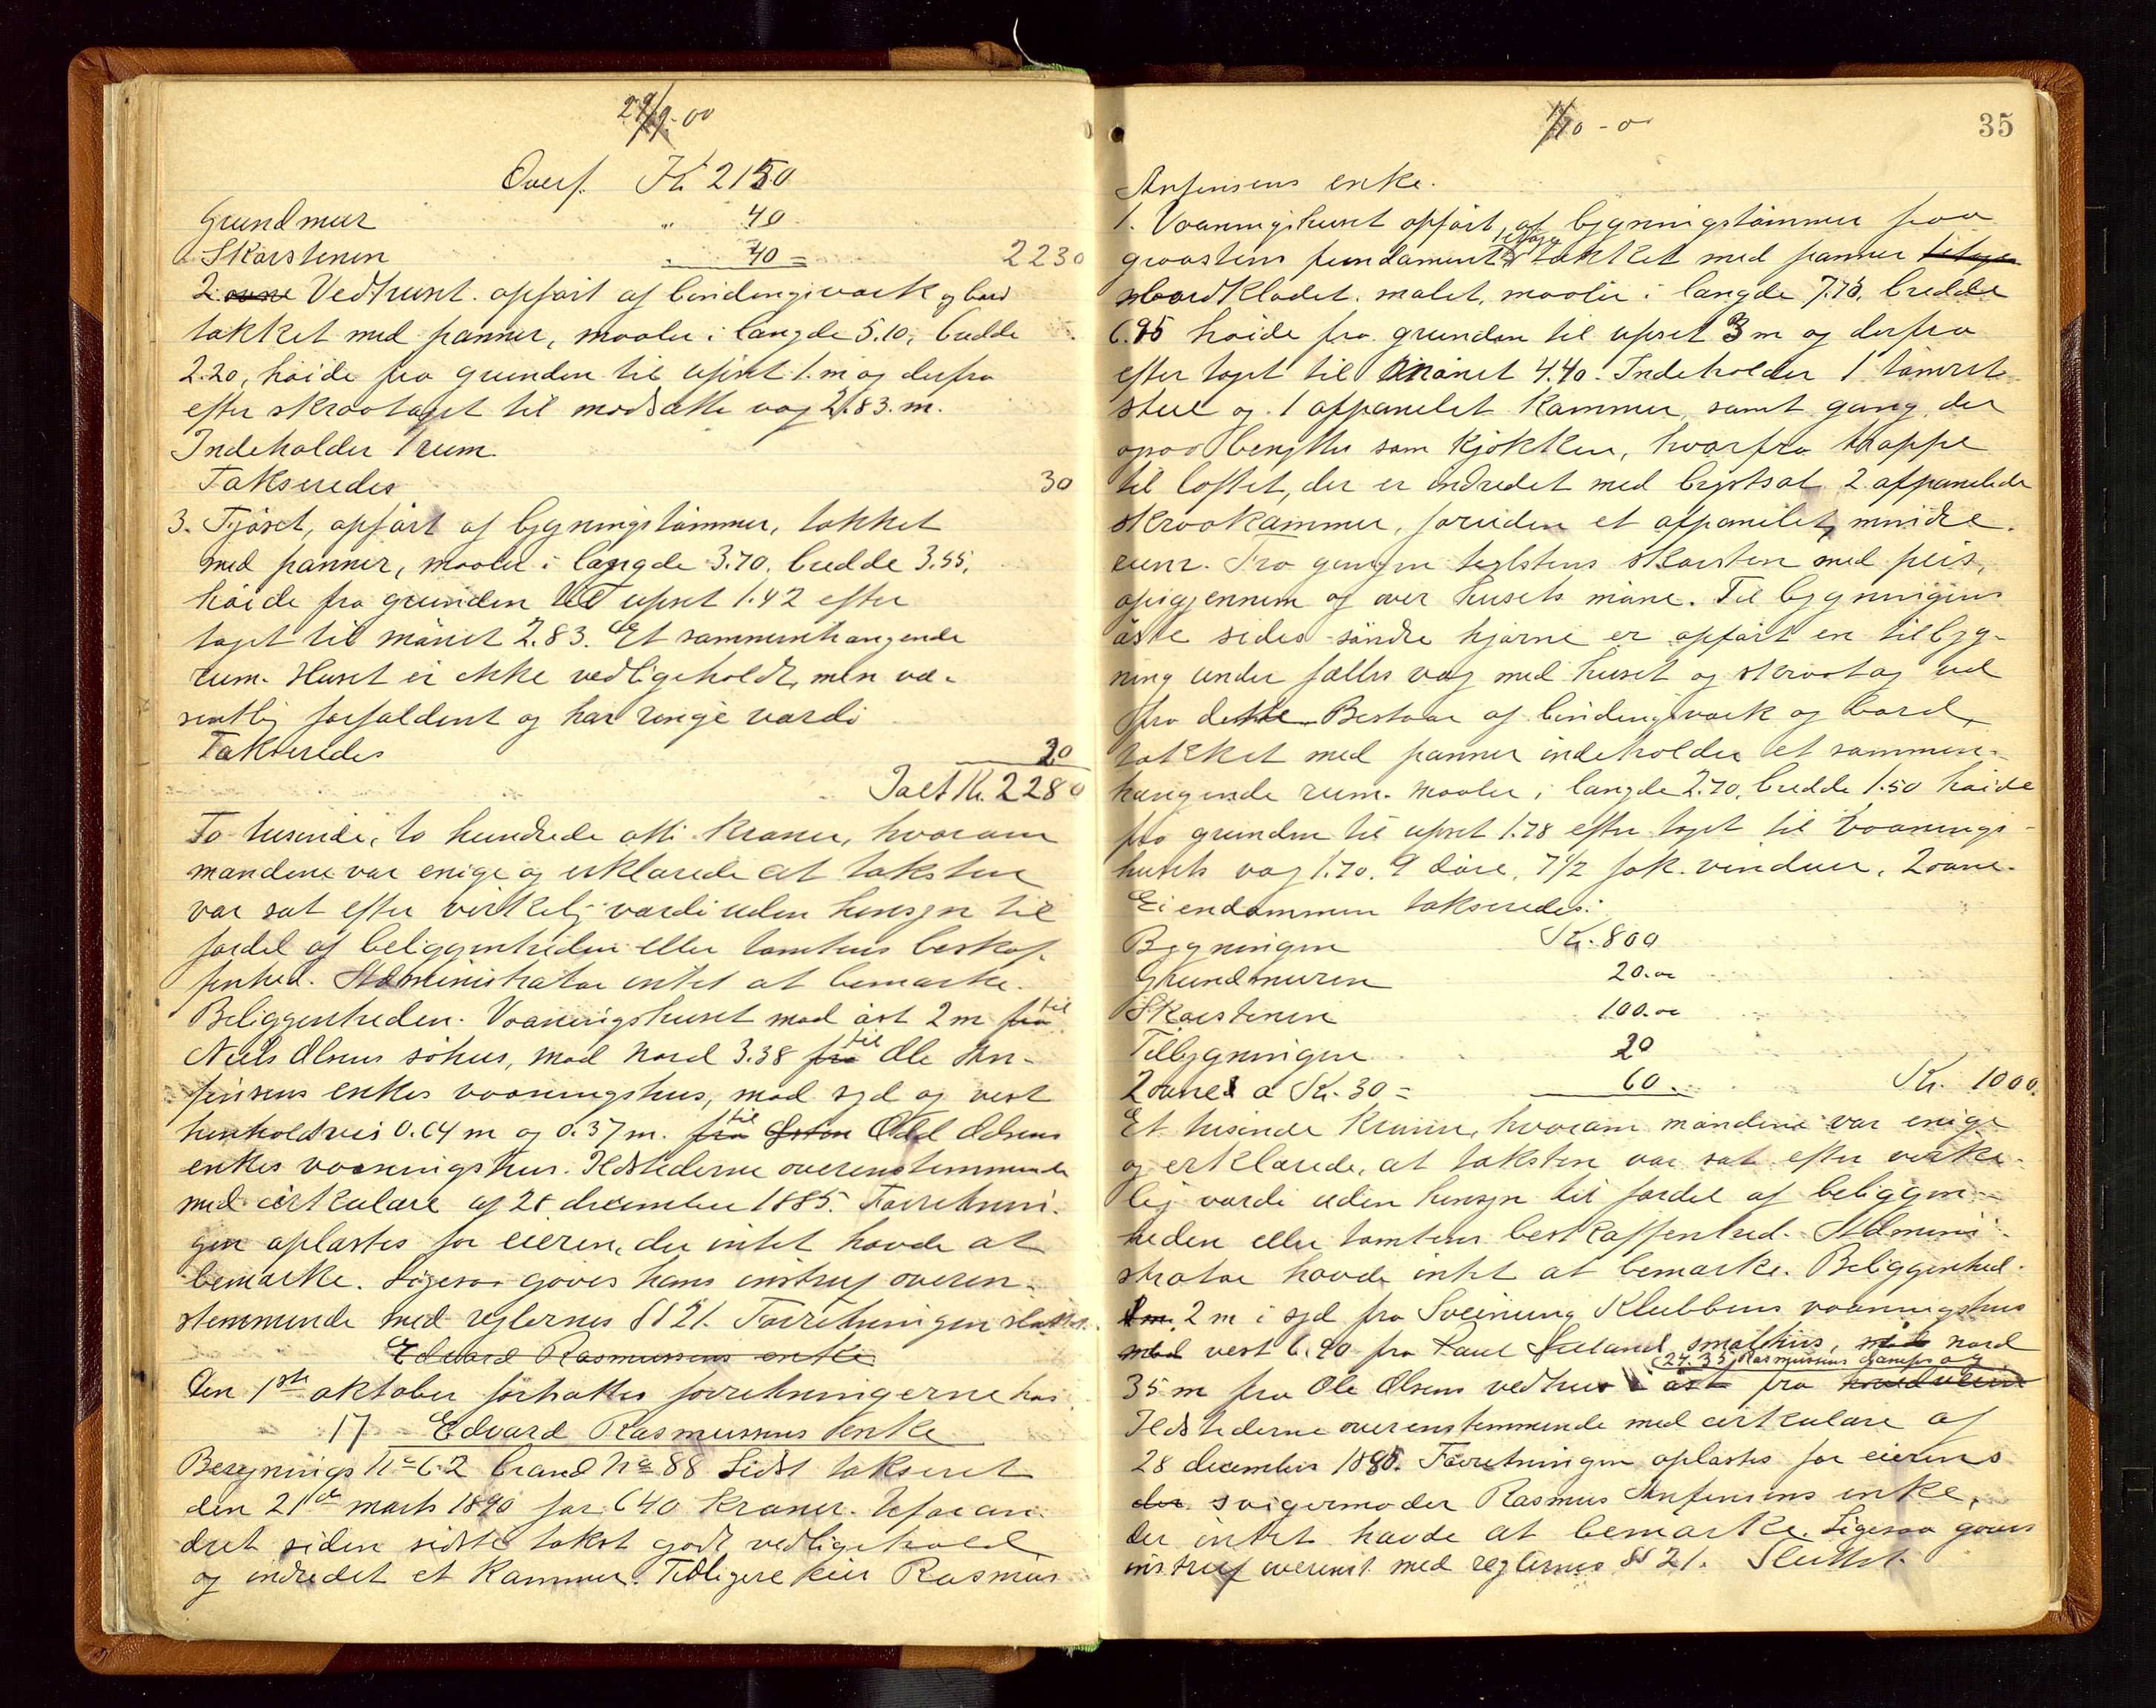 29/9-00
Overf. Kr 2150
Grundmur " 40
Skorstenen " 40 = 2230
2 ovne Vedhuset opført af bindingsværk og bord
tækket med panner, maaler i længde 5.10, bredde
2.20, høide fra grunden til upset 1. m og derfra
efter skraataget til modsatte væg 2.83. m.
Indeholder 1 rum.
Takseredes 30
3. Fjøset, opført af bygningstømmer, tækket
med panner, maaler i længde 3.70, bredde 3.55,
høide fra grunden til upset 1.42 efter
taget til mønet 2.83. Et sammenhængende
rum. Huset er ikke vedligeholdt, men væ-
sentlig forfaldent og har ringe værdi
Takseredes 20
Ialt Kr. 2280
To tusende, to hundrede otti kroner, hvorom
mændene var enige og erklærede at taksten
var sat efter virkelig værdi uden hensyn til
fordel af beliggenheden eller tomtens beskaf-
fenhed. Administrator intet at bemærke.
Beliggenheden. Vaaningshuset mod øst 2 m fra til
Niels Olsens søhus, mod nord 3.38 fra til Ole An-
finsens enkes vaaningshus, mod syd og vest
henholdsvis 0.64 m og 0.37 m. fra til Odd Odsens
enkes vaaningshus. Ildstederne overenstemmende
med cirkulære af 28 december 1885. Forretnin-
gen oplæstes for eieren, der intet havde at
bemærke. Ligesaa gaves ham instrux overen-
stemmende med reglernes §§ 21. Forretningen sluttet.
Edvard Rasmussens enke
Den 1ste oktober fortsattes forretningerne hos
17 Edvard Rasmussens enke
Bygnings No 62 brand No 88 Sidst takseret
den 21de marts 1890 for 640 kroner. Uforan-
dret siden sidste takst godt vedligehold
og indredet et kammer. Tidligere eier Rasmus
1/10-00
35
Anfinsens enke.
1. Vaaningshuset opført af bygningstømmer paa
graastens fundament tækket med panner
bordklædet, malet, maaler i længde 7.75, bredde
6.95 høide fra grunden til upset 3 m og derfra
efter taget til mønet 4.40. Indeholder 1 tømret
stue og 1 afpanelet kammer, samt gang, der
ogsaa benyttes som kjøkken, hvorfra trappe
til loftet, der er indredet med brystsat 2 afpanelede
skraakammer, foruden et afpanelet, mindre
rum. Fra gangen teglstens skorsten med peis,
opigjennem og over husets møne. Til bygningens
øste sides søndre hjørne er opført en tilbyg-
ning under fælles væg med huset og skraatag ud
fra dette. Bestaar af bindingsværk og bord,
tækket med panner indeholder et sammen-
hængende rum. Maaler i længde 2.70, bredde 1.50 høide
fra grunden til upset 1.78 efter taget til vaanings-
husets væg 1.70. 9 døre, 7 1/2 fak. vinduer, 2 ovne.
Eiendommen takseredes:
Bygningen Kr. 800
Grundmuren 20.00
Skorstenen 100.00
Tilbygningen 20
2 ovne a Kr. 30 = 60. Kr. 1000.
Et tusinde kroner, hvorom mændene var enige
og erklærede, at taksten var sat efter virke-
lig værdi uden hensyn til fordel af beliggen-
heden eller tomtens beskaffenhed. Admini-
strator havde intet at bemærke. Beliggenhed-
en. 2 m i syd fra Sveinung Klubbens vaaningshus
mod vest 6.90 fra Paul smalhus, mod nord
(24.35) Rasmussens
35 m fra Ole Olsens vedhus i øst fra
Ildstederne overenstemmende med cirkulære af
28 december 1885. Forretningen oplæstes for eierens
der svigermoder Rasmus Anfinsens enke,
der intet havde at bemærke. Ligesaa gaves
instrux overenst. med reglernes §§ 21. Sluttet.